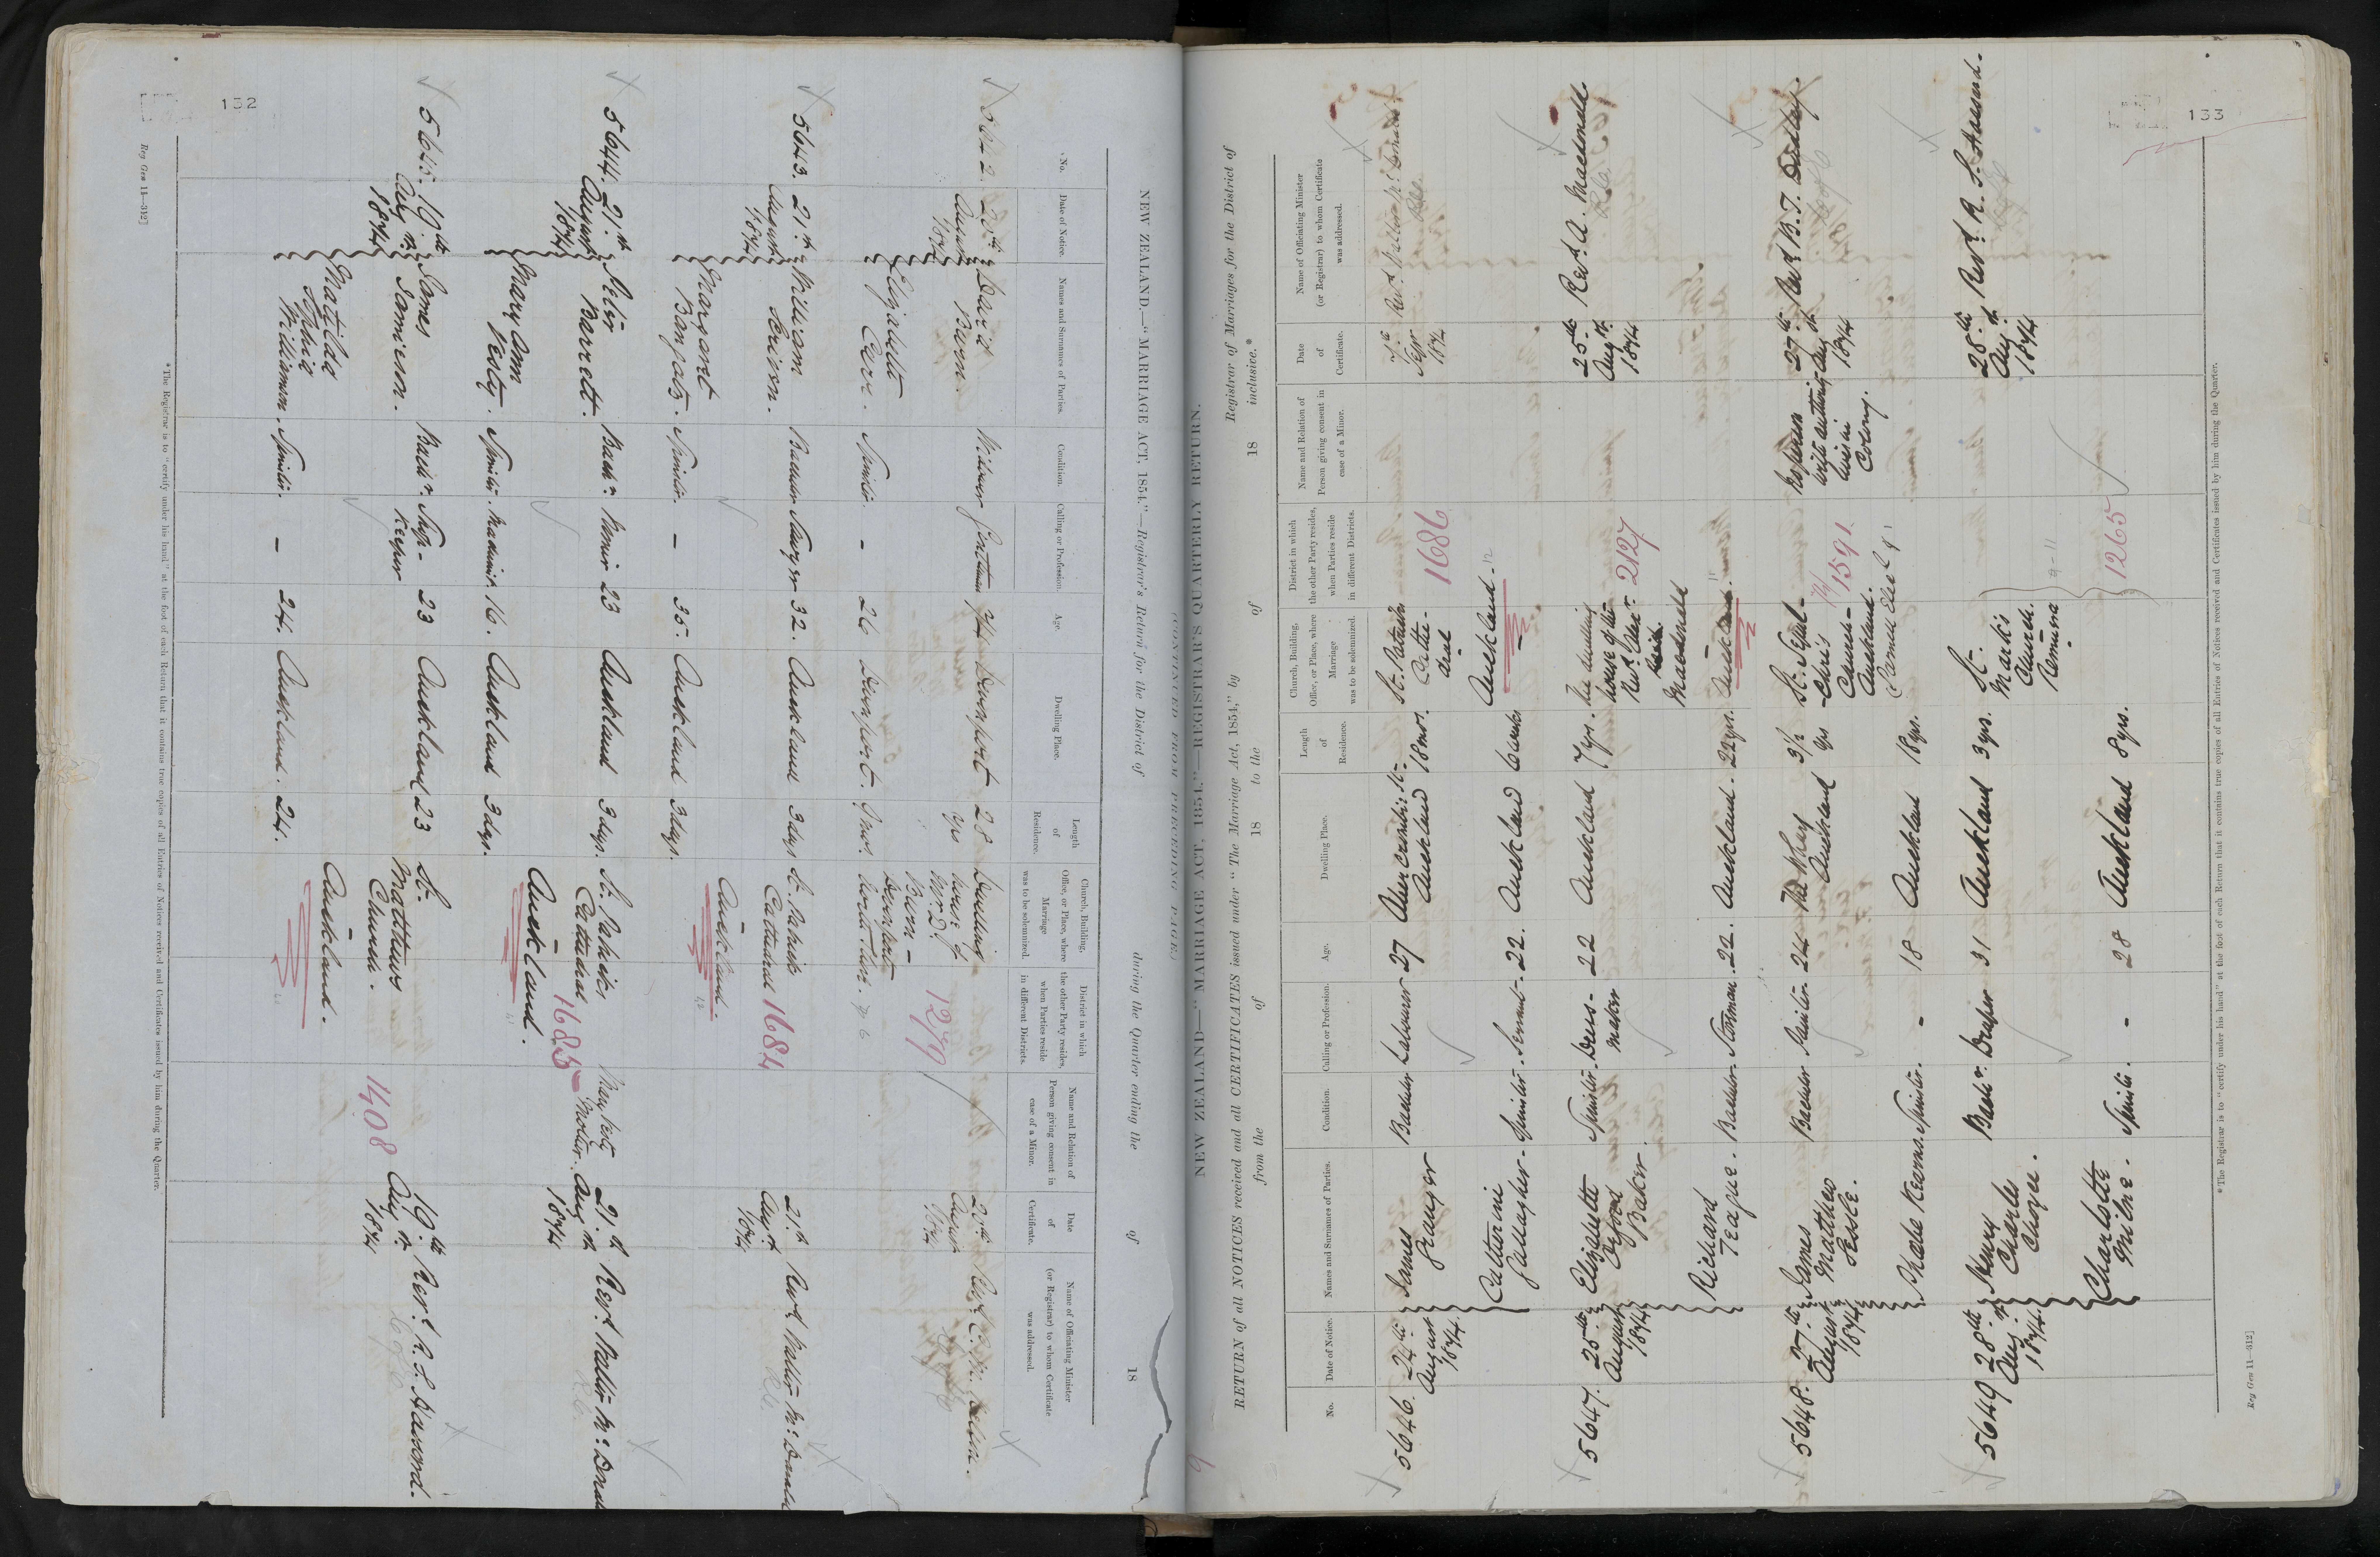 152
NEW ZEALAND.—"MARRIAGE ACT, 1854."—Registrar's Return for the District of during the Quarter ending the of 18
No.
Date of Notice.
Names and Surnames of Parties.
Condition.
Calling or Profession.
Age.
Dwelling Place.
Length of Residence.
Church, Building, Office, or Place, where Marriage was to be solemnized.
District in which the other Party resides, when Parties reside in different Districts.
Name and Relation of Person giving consent in case of a Minor.
Date of Certificate.
Name of Officiating Minister (or Registrar) to whom Certificate was addressed.
5642. 20th August 1874
David Burn
Widower Gentleman 74 Devonport 28 yrs
Dwelling house of Mr D. Burn - Devonport North Shore.
1279
20th August 1874
Elizabeth
Spinster. - 26 Devonport.
5643. 21st August 1874
William Scriven.
Bachelor Sawyer 32. Auckland 3 days
St. Patricks Cathedral
Auckland.
1684
21st Augst 1874
Revd Walter McDonald
Margaret
Spinster. - 35. Auckland 3 days.
5644. 21st August 1874
Peter Barrett.
Bachr. 23 Auckland 3 days.
St. Patricks Cathedral
Auckland.
1685
Mother.
21st Augst 1874
Revd. Walter McDonald
Mary Ann
Spinster. Machinist. 16. Auckland 3 days.
5645. 19th Augst. 1874
James Jamieson.
Bachr. Shop-keeper 23 Auckland 23
St. Matthews Church.
Auckland.
1408
19th Augst. 1874
Revd. R. S. Hassard.
C of E
Matilda Sophia Williamson.
Spinster. - 24. Auckland. 24.
*The Registrar is to "certify under his hand" at the foot of each Return that it contains true copies of all Entries of Notices received and Certificates issued by him during the Quarter.
Reg Gen 11—312]
133
(CONTINUED FROM PRECEDING PAGE)
NEW ZEALAND—"MARRIAGE ACT, 1854."—REGISTRAR'S QUARTERLY RETURN.
RETURN of all NOTICES received and all CERTIFICATES issued under "The Marriage Act, 1854," by Registrar of Marriages for the District of
from the of 18 to the of 18 inclusive.*
No.
Date of Notice.
Names and Surnames of Parties.
Condition.
Calling or Profession.
Age.
Dwelling Place.
Length of Residence.
Church, Building, Office, or Place, where Marriage was to be solemnized.
District in which the other Party resides, when Parties reside in different Districts.
Name and Relation of Person giving consent in case of a Minor.
Date of Certificate.
Name of Officiating Minister (or Registrar) to whom Certificate was addressed.
5646. 24th August 1874.
James Granger
Bachelor Labourer 27 Abercrombie St- Auckland 18 mos.
St. Patricks Cathedral
Auckland-
1686
Sepr 1874
Revd Walter McDonald
Catherine Gallagher-
Spinster- Servant- 22. Auckland 6 weeks
5647. 25th August 1874
Elizabeth Orford Baker.
Spinster- Dress-maker 22 Auckland 7 yrs.
The dwelling house of the Revd. Alexr. Macdonald
Auckland.
2127
25th Augst. 1874
Revd. A. Macdonald
Richard Teague.
Bachelor- Storeman. 22. Auckland. 22 yrs.
5648. 27th August 1874
James Matthew Searle.
Bachelor Painter- 24 The Whau Auckland 3½ yrs
St. Sepulchre's Church- Auckland.
1591
No person with authority living in Colony.
27th Augst 1874
Revd B. T. Dudley.
C of E
Phoebe Kearns.
Spinster. - 18 Auckland 18 yrs.
5649 28th Augst. 1874.
Henry Charles Choyce.
Bachr. Draper 31 Auckland 3 yrs.
St. Mark's Church. Remuera
1265
28th Augst. 1874
Revd. R. S. Hassard.
Charlotte Milne.
Spinster. - 28 Auckland 8 yrs.
*The Registrar is to "certify under his hand" at the foot of each Return that it contains true copies of all Entries of Notices received and Certificates issued by him during the Quarter.
Reg Gen 11—312]